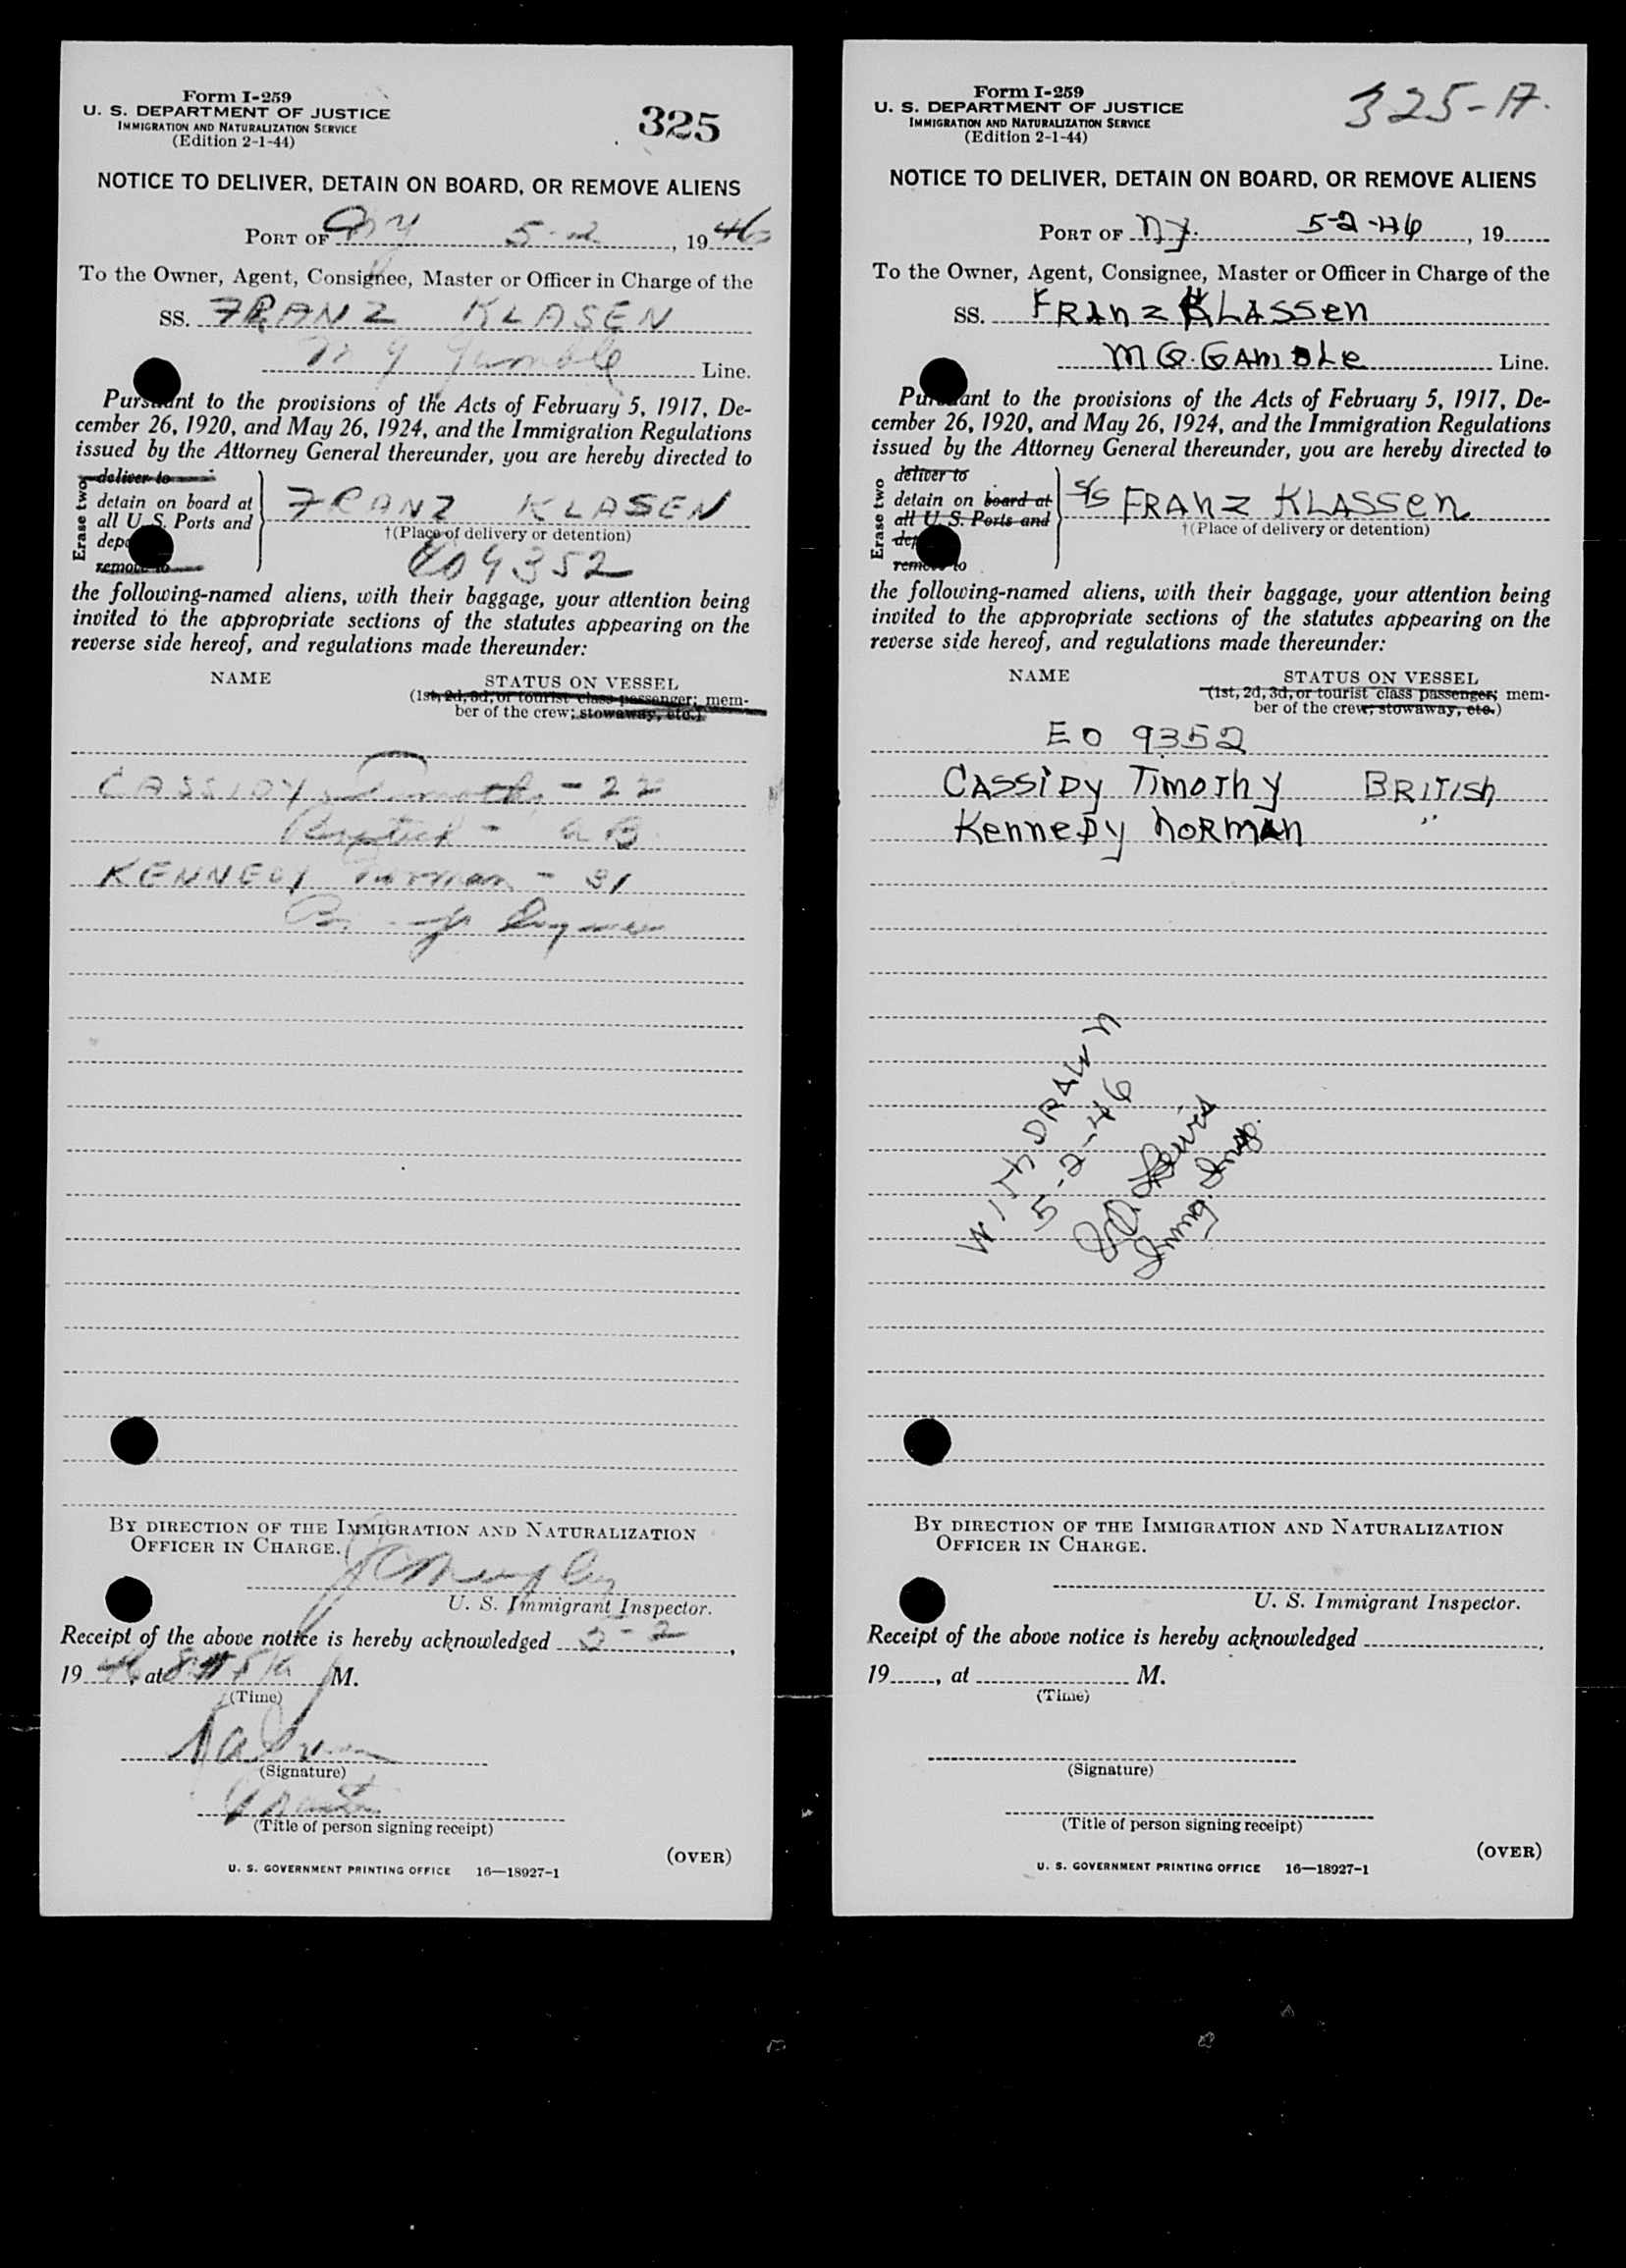 Form I-259
U. S. DEPARTMENT OF JUSTICE
IMMIGRATION AND NATURALIZATION SERVICE
(Edition 2-1-44)
325
NOTICE TO DELIVER, DETAIN ON BOARD, OR REMOVE ALIENS
PORT OF NY 5-2, 1946
To the Owner, Agent, Consignee, Master or Officer in Charge of the
SS. FRANZ KLASEN
Line.
Pursuant to the provisions of the Acts of February 5, 1917, De-
cember 26, 1920, and May 26, 1924, and the Immigration Regulations
issued by the Attorney General thereunder, you are hereby directed to
Erase two
deliver to
detain on board at
all U. S. Ports and
remove to
FRANZ KLASEN
†(Place of delivery or detention)
EO 9352
the following-named aliens, with their baggage, your attention being
invited to the appropriate sections of the statutes appearing on the
reverse side hereof, and regulations made thereunder:
NAME STATUS ON VESSEL
(1st, 2d, 3d, or tourist class passenger; mem-
ber of the crew; stowaway, etc.)
CASSIDY, Timothy - 22
KENNEDY Norman - 31
BY DIRECTION OF THE IMMIGRATION AND NATURALIZATION
OFFICER IN CHARGE.
U. S. Immigrant Inspector.
Receipt of the above notice is hereby acknowledged 5-2,
1946, at M.
(Time)
(Signature)
(Title of person signing receipt)
(OVER)
U. S. GOVERNMENT PRINTING OFFICE 16—18927-1
Form I-259
U. S. DEPARTMENT OF JUSTICE
IMMIGRATION AND NATURALIZATION SERVICE
(Edition 2-1-44)
325-A.
NOTICE TO DELIVER, DETAIN ON BOARD, OR REMOVE ALIENS
PORT OF NY. 5-2-46, 19
To the Owner, Agent, Consignee, Master or Officer in Charge of the
SS. FRANZ KLASSEN
MQ. GAMBLE Line.
Pursuant to the provisions of the Acts of February 5, 1917, De-
cember 26, 1920, and May 26, 1924, and the Immigration Regulations
issued by the Attorney General thereunder, you are hereby directed to
Erase two
deliver to
detain on board at
all U. S. Ports and
remove to
S/S FRANZ KLASSEN
†(Place of delivery or detention)
the following-named aliens, with their baggage, your attention being
invited to the appropriate sections of the statutes appearing on the
reverse side hereof, and regulations made thereunder:
NAME STATUS ON VESSEL
(1st, 2d, 3d, or tourist class passenger; mem-
ber of the crew; stowaway, etc.)
EO 9352
CASSIDY TIMOTHY BRITISH
KENNEDY NORMAN "
WITHDRAWN
5-2-46
Lewis
Immig. Insp.
BY DIRECTION OF THE IMMIGRATION AND NATURALIZATION
OFFICER IN CHARGE.
U. S. Immigrant Inspector.
Receipt of the above notice is hereby acknowledged ,
19 , at M.
(Time)
(Signature)
(Title of person signing receipt)
(OVER)
U. S. GOVERNMENT PRINTING OFFICE 16—18927-1